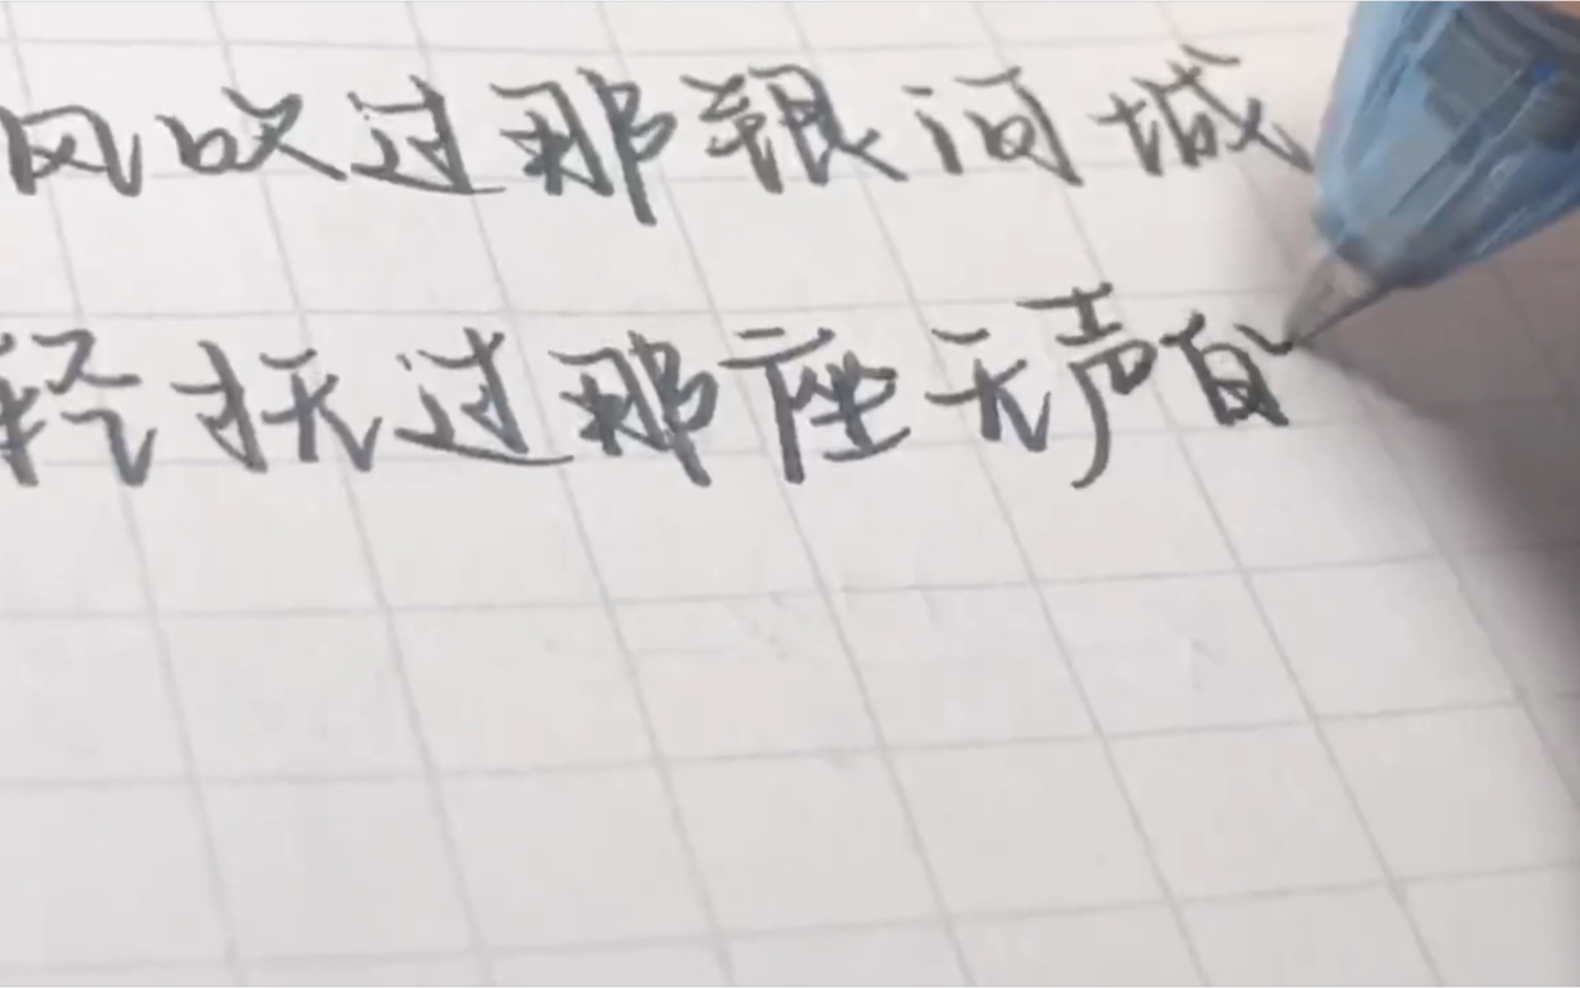 风吹过那银河城
轻抚过那座无声的